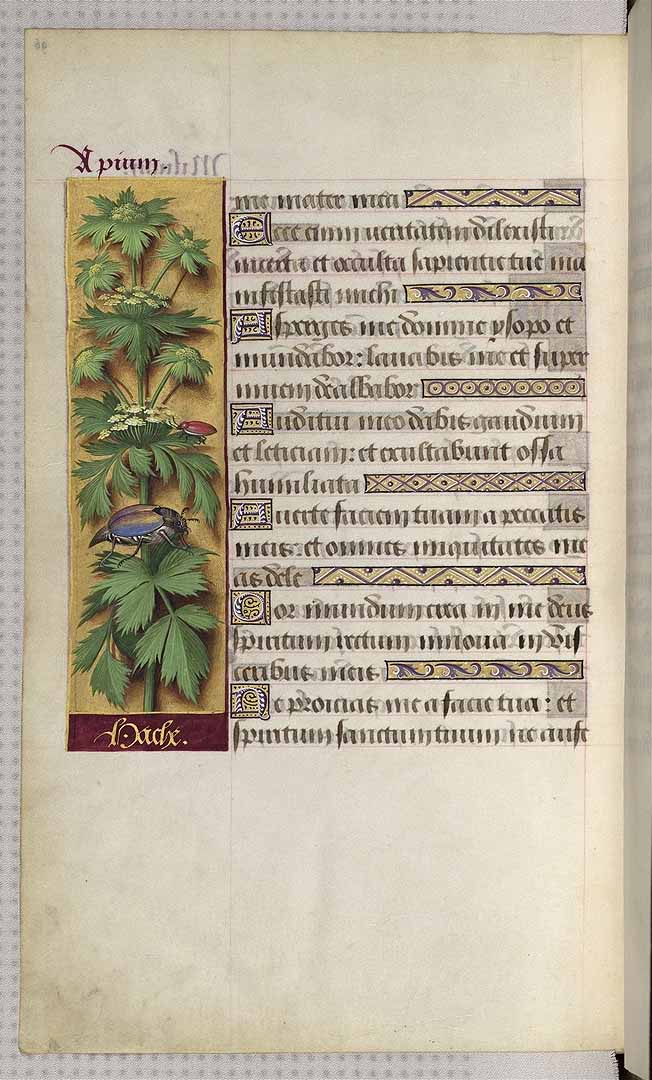 Apium.
me mater mea
Ecce enim ueritatem dilexisti
incerta et occulta sapientie tue ma
nifestasti michi
Asperges me domine ysopo et
mundabor: lauabis me et super
niuem dealbabor
Auditui meo dabis gaudium
et leticiam: et exultabunt ossa
humiliata
Auerte faciem tuam a peccatis
meis: et omnes iniquitates me
as dele
Cor mundum crea in me deus
spiritum rectum innoua in vis
ceribus meis
Ne proicias me a facie tua: et
spiritum sanctum tuum ne aufe
Hache.